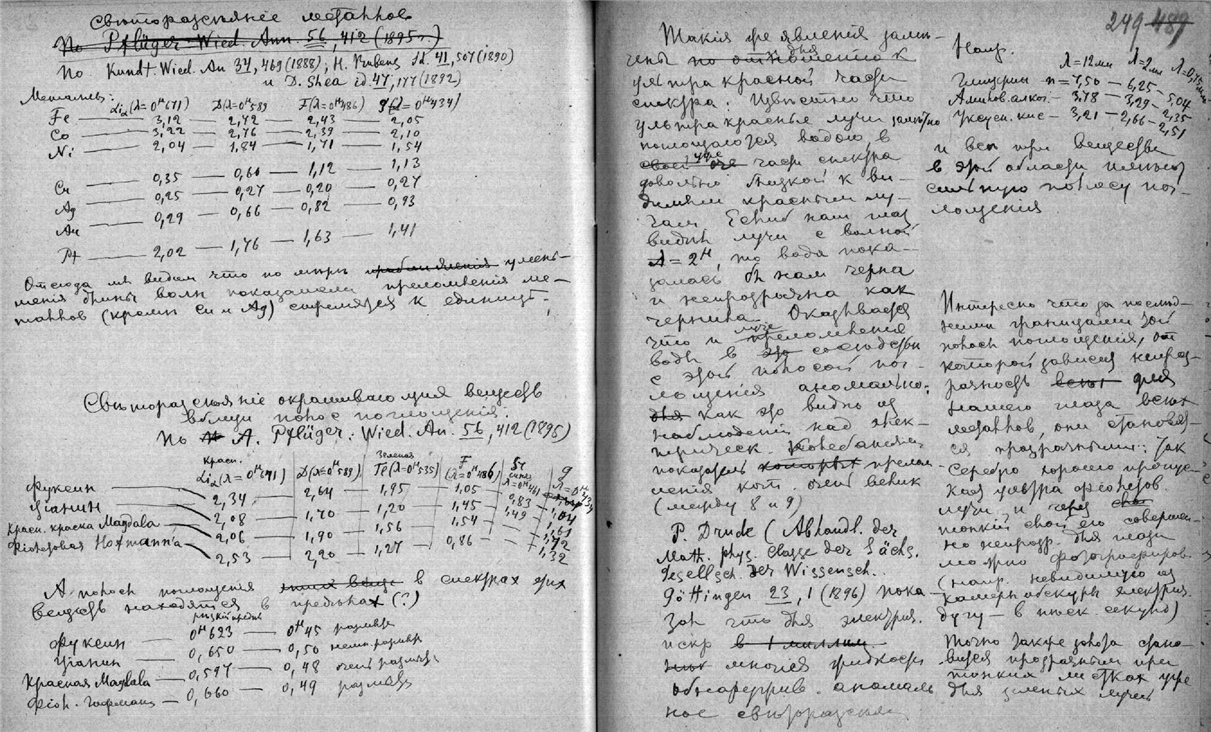 Свѣторазсѣяніе металловъ
По Pflüger Wied. Ann. 56, 412 (1895 г.)
По Kundt. Wied. An 34, 469 (1888); H. Rubens Id. 41, 507 (1890)
и D. Shea id 47, 177 (1892)
Металлы: Liα(λ=0μ671) D(λ=0μ589 F(λ=0μ486) (λ=0μ434)
Fe — 3,12 — 2,72 — 2,43 — 2,05
Co — 3,22 — 2,76 — 2,39 — 2,10
Ni — 2,04 — 1,84 — 1,71 — 1,54
Cu — 0,35 — 0,60 — 1,12 — 1,13
Ag — 0,25 — 0,27 — 0,20 — 0,27
Au — 0,29 — 0,66 — 0,82 — 0,93
Pt — 2,02 — 1,76 — 1,63 — 1,41
Отсюда мы видимъ что по мѣрѣ приближенія умень-
шенія длины волнъ показатели преломленія ме-
талловъ (кромѣ Cu и Ag) стремятся къ единицѣ.
Свѣторазсѣяніе окрашивающихъ веществъ
вблизи полосъ поглощенія.
По A. Pflüger. Wied. An. 56, 412 (1895)
Красн. Liα(λ=0μ671) D(λ=0μ589) Зеленая (λ=0μ535) F (λ=0μ486) синяя
Фуксинъ — 2,34 — 2,64 — 1,95 — 1,05 — 0,83 — 1,04
Ціанинъ — 2,08 — 1,70 — 1,20 — 1,45 — 1,49 — 1,61
Красн. краска Magdala — 2,06 — 1,90 — 1,56 — 1,54 — 1,72
Фіолетовая Hofmann'a — 2,53 — 2,20 — 1,27 — 0,86 — — 1,32
А полосы поглощенія въ спектрахъ этихъ
веществъ находятся въ предѣлахъ (?)
Фуксинъ 0μ623 — 0μ45 размыв.
Ціанинъ — 0,650 — 0,50 немн. размыв.
Красная Magdala — 0,597 — 0,48 очень размыв.
Фіол. Гофманъ — 0,660 — 0,49 размыв.
249 489
Такія же явленія замѣ-
чены по отношенію для къ
ультра красной части
спектра. Извѣстно что
ультра красные лучи
поглощаются водою въ
части спектра
довольно близкой къ ви-
димымъ краснымъ лу-
чамъ. Если нашъ глазъ
видѣлъ лучи съ волной
λ = 2μ, то вода пока-
залась бы намъ черна
и непрозрачна какъ
чернила. Оказывается
что и преломленіе
воды въ сосѣдствѣ
съ этой полосой пог-
лощенія аномально:
какъ это видно изъ
наблюденій надъ элек-
трическ. колебаніями
показатель который прелом-
ленія кот. очень великъ
(между 8 и 9)
P. Drude (Abhandl. der
Math. phys. Classe der Sächs.
Gesellsch. der Wissensch.
Göttingen 23, 1 (1896) пока-
залъ что для электрич.
искръ
многія жидкости
обнаружив. аномаль-
ное свѣторазсѣяніе
Напр.
λ=12мм λ=2мм λ=0,75мм
Глицеринъ n=7,50 — 6,25 — 5,04
Амилов. алког. — 3,78 — 3,29 — 2,35
Уксусн. кис — 3,21 — 2,66 — 2,51
и всѣ три вещества
въ этой области имѣютъ
сильную полосу пог-
лощенія
Интересно что за послѣд-
ними границами этой
полосы поглощенія, отъ
которой зависитъ непроз-
рачность для
нашего глаза всѣхъ
металловъ, они становят-
ся прозрачными: такъ
серебро хорошо пропус-
каетъ ультра фіолетов.
лучи и черезъ
тонкій слой его соверше-
но непрозр. для глаза
можно фотографиров-
(напр. невидимую изъ
камеры обскуры электрич.
дугу — въ нѣск. секундъ)
Точно также золото стано-
вится прозрачнымъ при
тонкихъ листкахъ уже
для зеленыхъ лучей